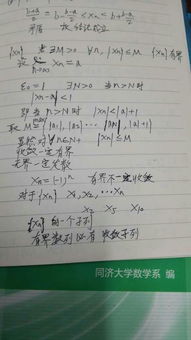 b+a/2 = b - b-a/2 < xn < b + b-a/2
矛盾 故 结论成立
{xn} 若∃M>0 ∀n, |xn|≤M {xn}有界
设 lim n→∞ xn = a
ε0=1 ∃N>0 当n>N时
|xn-a|<1
即当n>N时 |xn|<|a|+1
取M=max{|a1|, |a2| ... |aN|, |a|+1}
显然对∀n∈N+ |xn|≤M
收敛一定有界
无界一定发散
xn=(-1)^n 有界不一定收敛
对于{xn} x1, x2, ... xn
x2 x5 x10
{xn}的一个子列
有界数列必有收敛子列
同济大学数学系 编